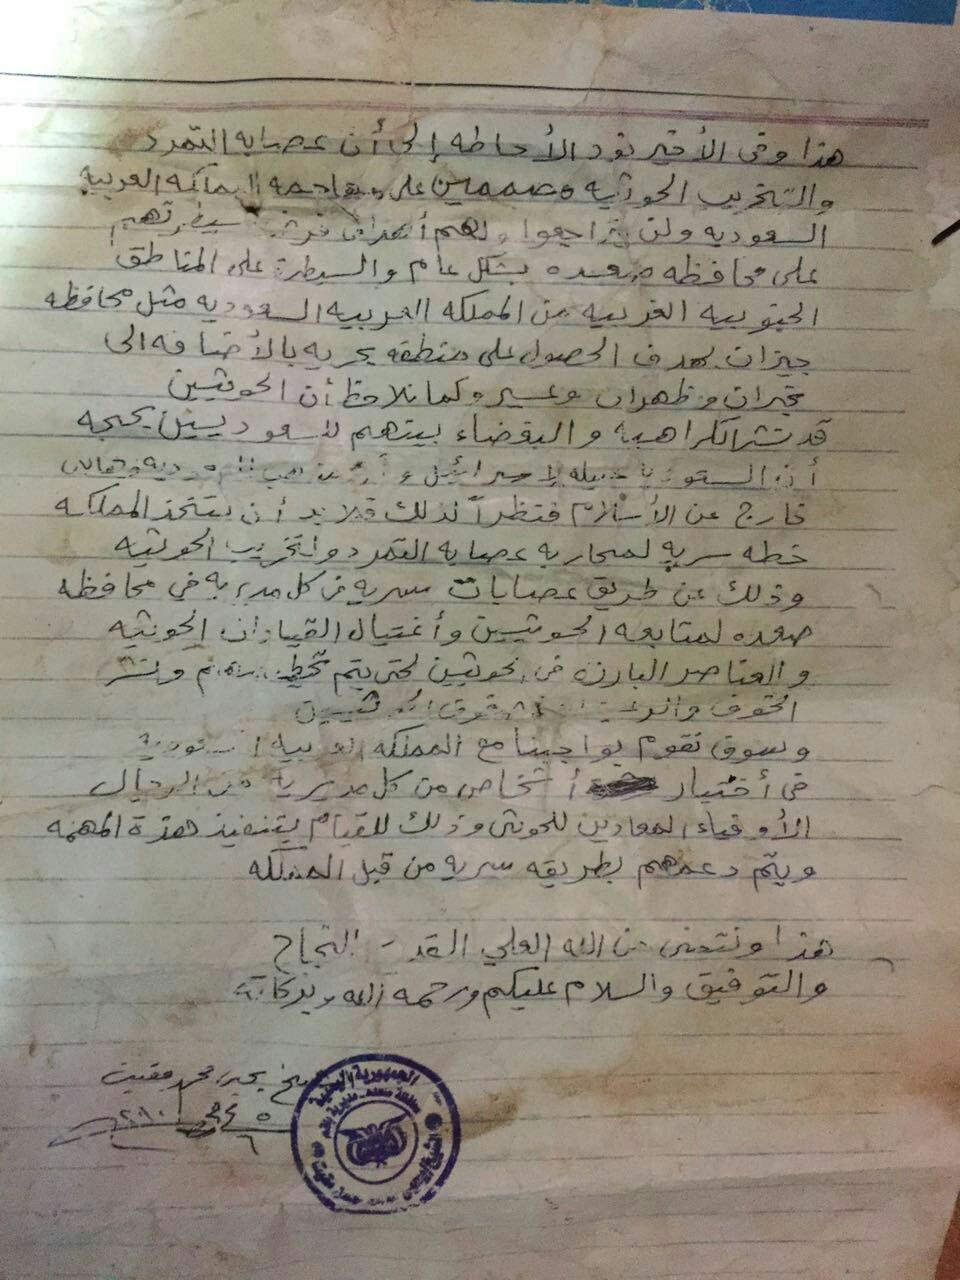 هذا وفي الأخير نود الأحاطه إلى أن عصابه التمرد
والتخريب الحوثيه مصممين على مهاجمه المملكه العربيه
السعوديه ولن يتراجعوا ولهم أهداف سيطرتهم
على محافظه صعده بشكل عام والسيطرة على المناطق
الجنوبيه الغربيه من المملكه العربيه السعوديه مثل محافظه
جيزان بهدف الحصول على منطقه بحريه بالأضافه الى
نجران وظهران وعسير وكما نلاحظ أن الحوثيين
قد نشر الكراهيه والبغضاء بينهم للسعوديين بحجه
أن عميله لإسرائيل
خارج عن الأسلام فنظراً لذلك فلابد أن يتخذ المملكه
خطه سريه لمحاربه عصابه التمرد والتخريب الحوثيه
وذلك عن طريق عصابات سريه في كل مديريه في محافظه
صعده لمتابعه الحوثيين وأغتيال القيادات الحوثيه
والعناصر البارزه في الحوثيين لحتى يتم ونشر
الخوف
وسوف نقوم بواجبنا مع المملكه العربيه السعوديه
في أختيار أشخاص من كل مديريه من الرجال
الأوفياء المعادين للحوثي وذلك للقيام بتنفيذ هذة المهمه
ويتم دعمهم بطريقه سريه من قبل المملكه
هذا ونتمنى من الله العلي القدير النجاح
والتوفيق والسلام عليكم ورحمة الله وبركاته
محمد مقيت
الجمهورية اليمنية
محافظة صعدة - مديرية